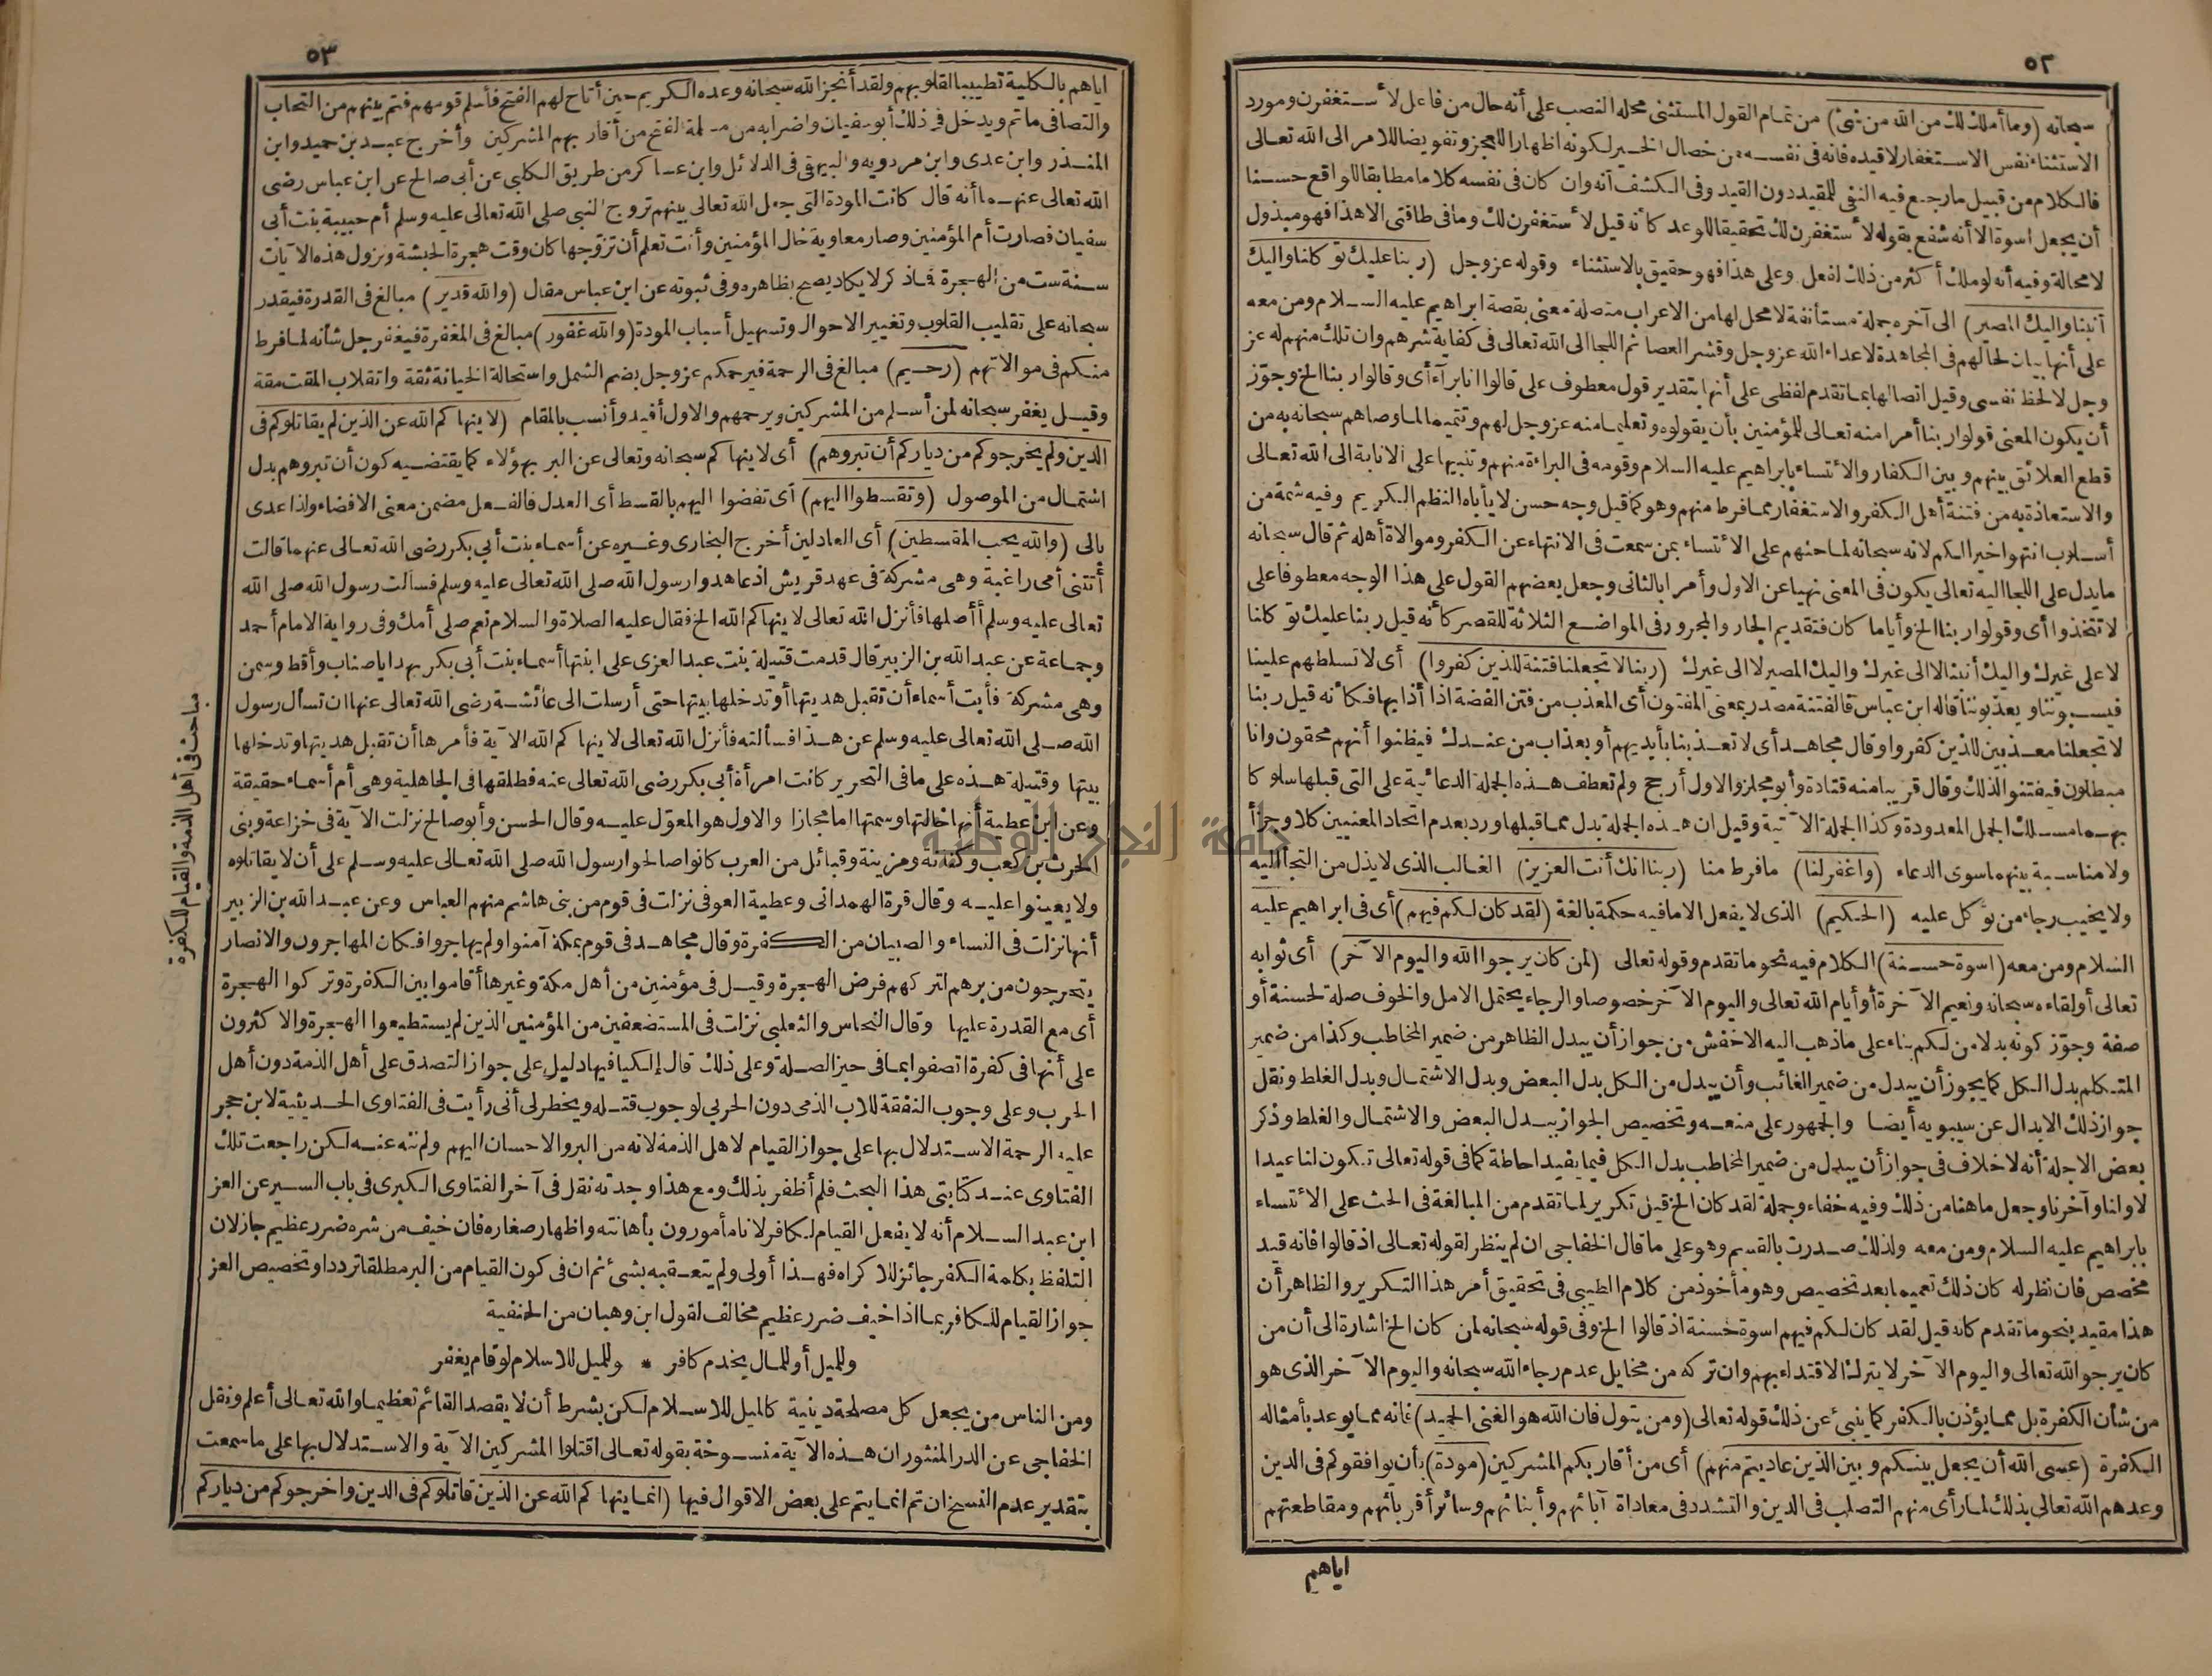 ٥٢
سبحانه (وما أملك لك من الله من شئ) من تمام القول المستثنى محله النصب على أنه حال من فاعل لأستغفرن ومورد
الاستثناء نفس الاستغفار لا قيده فانه في نفسه من خصال الخير لكونه اظهارا للعجز وتفويضا للامر الى الله تعالى
فالكلام من قبيل ما رجع فيه النفي للمقيد دون القيد وفي الكشف انه وان كان في نفسه كلاما مطابقا للواقع حسنا
أن يجعل اسوة الا أنه شفع بقوله لأستغفرن لك تحقيقا للوعد كأنه قيل لأستغفرن لك وما في طاقتي الا هذا فهو مبذول
لا محالة وفيه أنه لو ملك أكثر من ذلك لفعل وعلى هذا فهو حقيق بالاستثناء وقوله عز وجل (ربنا عليك توكلنا واليك
أنبنا واليك المصير) الى آخره جملة مستأنفة لا محل لها من الاعراب متصلة معنى بقصة ابراهيم عليه السلام ومن معه
على أنها بيان لحالهم في المجاهدة لاعداء الله عز وجل وقشر العصا ثم اللجا الى الله تعالى في كفاية شرهم وان تلك منهم له عز
وجل لا لحظ نفسي وقيل اتصالها بما تقدم لفظي على أنها بتقدير قول معطوف على قالوا انا برآء أي وقالوا ربنا الخ وجوز
أن يكون المعنى قولوا ربنا أمرا منه تعالى للمؤمنين بأن يقولوه وتعليما منه عز وجل لهم وتتميما لما وصاهم سبحانه به من
قطع العلائق بينهم وبين الكفار والائتساء بابراهيم عليه السلام وقومه في البراءة منهم وتنبيها على الانابة الى الله تعالى
والاستعاذة به من فتنة أهل الكفر والاستغفار مما فرط منهم وهو كما قيل وجه حسن لا يأباه النظم الكريم وفيه شمة من
أسلوب انتهوا خيرا لكم لانه سبحانه لما حثهم على الائتساء بمن سمعت في الانتهاء عن الكفر وموالاة أهله ثم قال سبحانه
ما يدل على اللجا اليه تعالى يكون في المعنى نهيا عن الاول وأمرا بالثاني وجعل بعضهم القول على هذا الوجه معطوفا على
لا تتخذوا أي وقولوا ربنا الخ وأياما كان فتقديم الجار والمجرور في المواضع الثلاثة للقصر كأنه قيل ربنا عليك توكلنا
لا على غيرك واليك أنبنا لا الى غيرك واليك المصير لا الى غيرك (ربنا لا تجعلنا فتنة للذين كفروا) أي لا تسلطهم علينا
فيسبوننا ويعذبوننا قاله ابن عباس فالفتنة مصدر بمعنى المفتون أي المعذب من فتن الفضة اذا أذابها فكأنه قيل ربنا
لا تجعلنا معذبين للذين كفروا وقال مجاهد أي لا تعذبنا بأيديهم أو بعذاب من عندك فيظنوا أنهم محقون وانا
مبطلون فيفتنوا لذلك وقال قريبا منه قتادة وأبو مجلز والاول أرجح ولم تعطف هذه الجملة الدعائية على التي قبلها سلوكا
بهما مسلك الجمل المعدودة وكذا الجملة الآتية وقيل ان هذه الجملة بدل مما قبلها ورد بعدم اتحاد المعنيين كلا وجزأ
ولا مناسبة بينهما سوى الدعاء (واغفر لنا) ما فرط منا (ربنا انك أنت العزيز) الغالب الذي لا يذل من التجأ اليه
ولا يخيب رجاء من توكل عليه (الحكيم) الذي لا يفعل الا ما فيه حكمة بالغة (لقد كان لكم فيهم) أي في ابراهيم عليه
السلام ومن معه (اسوة حسنة) الكلام فيه نحو ما تقدم وقوله تعالى (لمن كان يرجوا الله واليوم الآخر) أي ثوابه
تعالى أو لقاءه سبحانه ونعيم الآخرة أو أيام الله تعالى واليوم الآخر خصوصا والرجاء يحتمل الامل والخوف صلة لحسنة أو
صفة وجوز كونه بدلا من لكم بناء على ما ذهب اليه الاخفش من جواز أن يبدل الظاهر من ضمير المخاطب وكذا من ضمير
المتكلم بدل الكل كما يجوز أن يبدل من ضمير الغائب وأن يبدل من الكل بدل البعض وبدل الاشتمال وبدل الغلط ونقل
جواز ذلك الابدال عن سيبويه أيضا والجمهور على منعه وتخصيص الجواز ببدل البعض والاشتمال والغلط وذكر
بعض الاجلة أنه لا خلاف في جواز أن يبدل من ضمير المخاطب بدل الكل فيما يفيد احاطة كما في قوله تعالى تكون لنا عيدا
لاولنا وآخرنا وجعل ما هنا من ذلك وفيه خفاء وجملة لقد كان الخ قيل تكرير لما تقدم من المبالغة في الحث على الائتساء
بابراهيم عليه السلام ومن معه ولذلك صدرت بالقسم وهو على ما قال الخفاجي ان لم ينظر لقوله تعالى اذ قالوا فانه قيد
مخصص فان نظر له كان ذلك تعميما بعد تخصيص وهو مأخوذ من كلام الطيبي في تحقيق أمر هذا التكرير والظاهر أن
هذا مقيد بنحو ما تقدم كانه قيل لقد كان لكم فيهم اسوة حسنة اذ قالوا الخ وفي قوله سبحانه لمن كان الخ اشارة الى أن من
كان يرجو الله تعالى واليوم الآخر لا يترك الاقتداء بهم وان تركه من مخايل عدم رجاء الله سبحانه واليوم الآخر الذي هو
من شأن الكفرة بل مما يؤذن بالكفر كما ينبئ عن ذلك قوله تعالى (ومن يتول فان الله هو الغني الحميد) فانه مما يوعد بأمثاله
الكفرة (عسى الله أن يجعل بينكم وبين الذين عاديتم منهم) أي من أقاربكم المشركين (مودة) بأن يوافقوكم في الدين
وعدهم الله تعالى بذلك لما رأى منهم التصلب في الدين والتشدد في معاداة آبائهم وأبنائهم وسائر أقربائهم ومقاطعتهم
اياهم
٥٣
اياهم بالكلية تطييبا لقلوبهم ولقد أنجز الله سبحانه وعده الكريم حين أتاح لهم الفتح فأسلم قومهم فتم بينهم من التحاب
والتصافي ما تم ويدخل في ذلك أبو سفيان واضرابه من مسلمة الفتح من أقاربهم المشركين وأخرج عبد بن حميد وابن
المنذر وابن عدي وابن مردويه والبيهقي في الدلائل وابن عساكر من طريق الكلبي عن أبي صالح عن ابن عباس رضي
الله تعالى عنهما أنه قال كانت المودة التي جعل الله تعالى بينهم تزوج النبي صلى الله تعالى عليه وسلم أم حبيبة بنت أبي
سفيان فصارت أم المؤمنين وصار معاوية خال المؤمنين وأنت تعلم أن تزوجها كان وقت هجرة الحبشة ونزول هذه الآيات
سنة ست من الهجرة فما ذكر لا يكاد يصح بظاهره وفي ثبوته عن ابن عباس مقال (والله قدير) مبالغ في القدرة فيقدر
سبحانه على تقليب القلوب وتغيير الاحوال وتسهيل أسباب المودة (والله غفور) مبالغ في المغفرة فيغفر جل شأنه لما فرط
منكم في موالاتهم (رحيم) مبالغ في الرحمة فيرحمكم عز وجل بضم الشمل واستحالة الخيانة ثقة وانقلاب المقت مقة
وقيل يغفر سبحانه لمن أسلم من المشركين ويرحمهم والاول أفيد وأنسب بالمقام (لا ينهاكم الله عن الذين لم يقاتلوكم في
الدين ولم يخرجوكم من دياركم أن تبروهم) أي لا ينهاكم سبحانه وتعالى عن البر بهؤلاء كما يقتضيه كون أن تبروهم بدل
اشتمال من الموصول (وتقسطوا اليهم) أي تفضوا اليهم بالقسط أي العدل فالفعل مضمن معنى الافضاء ولذا عدى
بالى (والله يحب المقسطين) أي العادلين أخرج البخاري وغيره عن أسماء بنت أبي بكر رضي الله تعالى عنهما قالت
أتتني أمي راغبة وهي مشركة في عهد قريش اذ عاهدوا رسول الله صلى الله تعالى عليه وسلم فسألت رسول الله صلى الله
تعالى عليه وسلم أأصلها فأنزل الله تعالى لا ينهاكم الله الخ فقال عليه الصلاة والسلام نعم صلى أمك وفي رواية الامام أحمد
وجماعة عن عبد الله بن الزبير قال قدمت قتيلة بنت عبد العزى على ابنتها أسماء بنت أبي بكر بهدايا صناب وأقط وسمن
وهي مشركة فأبت أسماء أن تقبل هديتها أو تدخلها بيتها حتى أرسلت الى عائشة رضي الله تعالى عنها ان تسأل رسول
الله صلى الله تعالى عليه وسلم عن هذا فسألته فأنزل الله تعالى لا ينهاكم الله الآية فأمرها أن تقبل هديتها وتدخلها
بيتها وقتيلة هذه على ما في التحرير كانت امرأة أبي بكر رضي الله تعالى عنه فطلقها في الجاهلية وهي أم أسماء حقيقة
وعن ابن عطية أنها خالتها وسمتها أما مجازا والاول هو المعول عليه وقال الحسن وأبو صالح نزلت الآية في خزاعة وبني
الحرث بن كعب وكنانة ومزينة وقبائل من العرب كانوا صالحوا رسول الله صلى الله تعالى عليه وسلم على أن لا يقاتلوه
ولا يعينوا عليه وقال قرة الهمداني وعطية العوفي نزلت في قوم من بني هاشم منهم العباس وعن عبد الله بن الزبير
أنها نزلت في النساء والصبيان من الكفرة وقال مجاهد في قوم بمكة آمنوا ولم يهاجروا فكان المهاجرون والانصار
يتحرجون من برهم لتركهم فرض الهجرة وقيل في مؤمنين من أهل مكة وغيرها أقاموا بين الكفرة وتركوا الهجرة
أي مع القدرة عليها وقال النحاس والثعلبي نزلت في المستضعفين من المؤمنين الذين لم يستطيعوا الهجرة والاكثرون
على أنها في كفرة اتصفوا بما في حيز الصلة وعلى ذلك قال إلكيا فيها دليل على جواز التصدق على أهل الذمة دون أهل
الحرب وعلى وجوب النفقة للاب الذمي دون الحربي لوجوب قتله ويخطر لي أني رأيت في الفتاوى الحديثية لابن حجر
عليه الرحمة الاستدلال بها على جواز القيام لاهل الذمة لانه من البر والاحسان اليهم ولم ننه عنه لكن راجعت تلك
الفتاوى عند كتابتي هذا البحث فلم أظفر بذلك ومع هذا وجدته نقل في آخر الفتاوى الكبرى في باب السير عن العز
ابن عبد السلام أنه لا يفعل القيام لكافر لانا مأمورون بأهانته واظهار صغاره فان خيف من شره ضرر عظيم جاز لان
التلفظ بكلمة الكفر جائز للاكراه فهذا أولى ولم يتعقبه بشئ ثم ان في كون القيام من البر مطلقا ترددا وتخصيص العز
جواز القيام للكافر بما اذا خيف ضرر عظيم مخالف لقول ابن وهبان من الحنفية
وللميل أو للمال يخدم كافر * وللميل للاسلام لو قام يغفر
ومن الناس من يجعل كل مصلحة دينية كالميل للاسلام لكن بشرط أن لا يقصد القائم تعظيما والله تعالى أعلم ونقل
الخفاجي عن الدر المنثور ان هذه الآية منسوخة بقوله تعالى اقتلوا المشركين الآية والاستدلال بها على ما سمعت
بتقدير عدم النسخ ان تم انما يتم على بعض الاقوال فيها (انما ينهاكم الله عن الذين قاتلوكم في الدين وأخرجوكم من دياركم
مباحث في أهل الذمة والقيام للكفرة
جامعة النجاح الوطنية